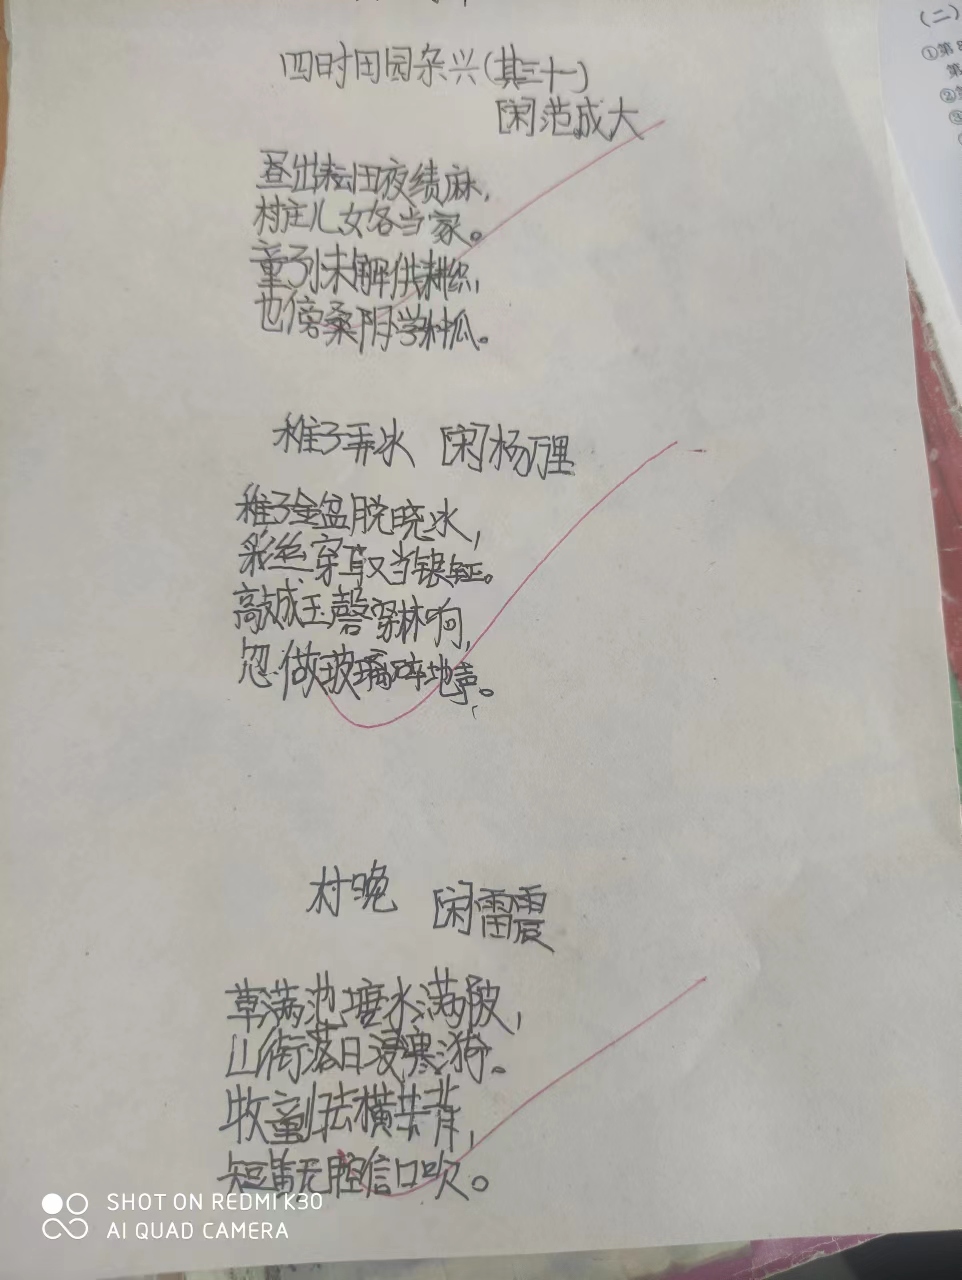 四时田园杂兴(其三十一)
[宋]范成大
昼出耘田夜绩麻,
村庄儿女各当家。
童孙未解供耕织,
也傍桑阴学种瓜。
稚子弄冰 [宋]杨万里
稚子金盆脱晓冰,
彩丝穿取当银钲。
敲成玉磬穿林响,
忽做玻璃碎地声。
村晚 [宋]雷震
草满池塘水满陂,
山衔落日浸寒漪。
牧童归去横牛背,
短笛无腔信口吹。
(二)
①第8
第
②
③
SHOT ON REDMI K30
AI QUAD CAMERA